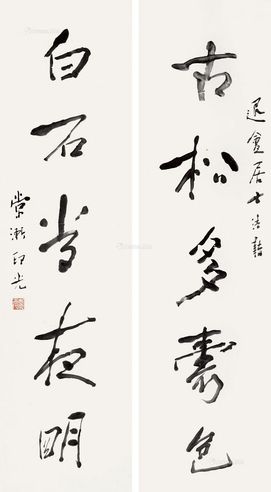 退盦居士
古松多壽色
白石常夜明
常慚印光